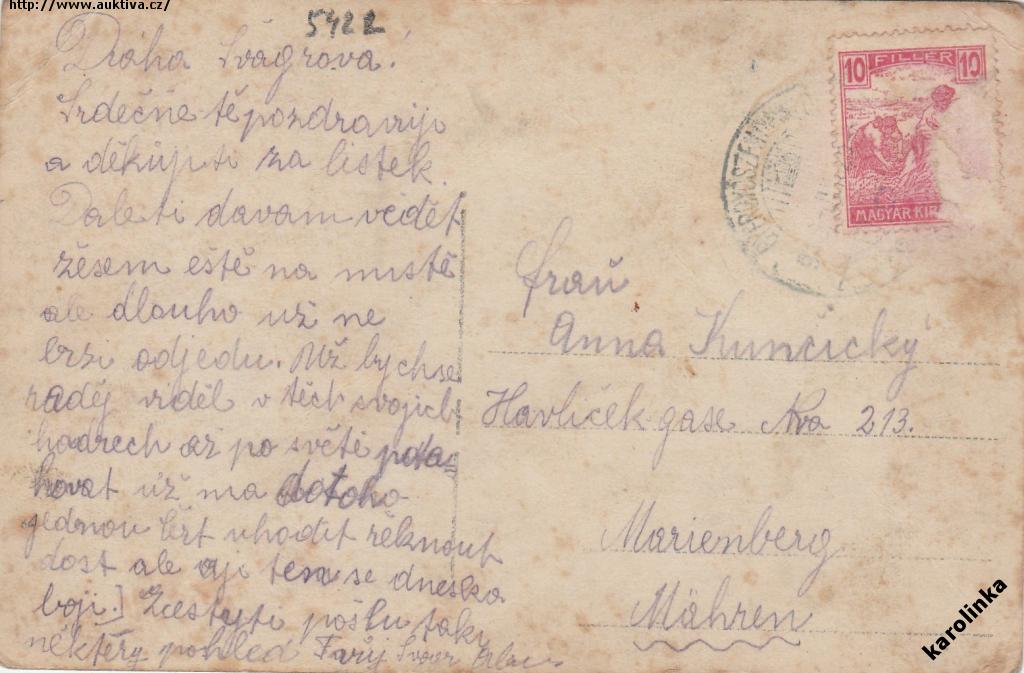 http://www.auktiva.cz/
5422
Drahá Švagrova!
Srdečně tě pozdravuji
a děkuji ti za listek.
Dale ti davam vědět
žesem eště na mistě
ale dlouho už ne
brzi odjedu. Už bych se
raděj viděl v těch svojich
hadrech az po světě pota=
hovat už ma do toho
jednou čert uhodit řeknout
dost ale aji ten se dneska
boji.] Zcesty ti pošlu taky
některy pohled Tvůj Švagr
10 FILLER 10
MAGYAR KIR
OROSZ
Frau
Anna Kunčický
Havliček gase Nro 213.
Marienberg
Mähren
karolinka